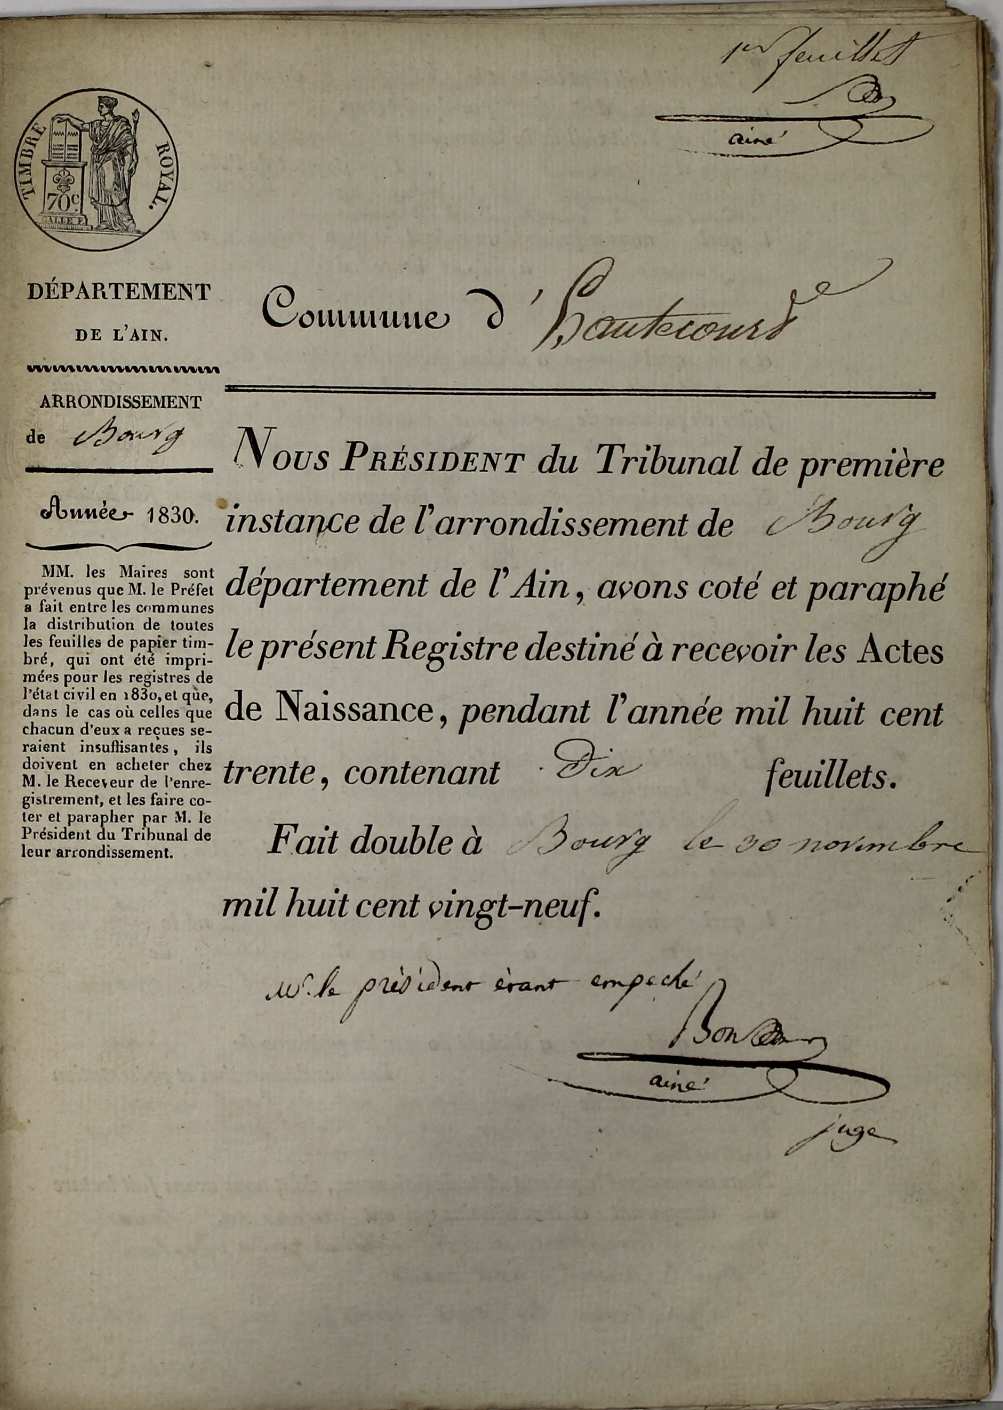 1er feuillet
ainé
TIMBRE ROYAL.
70c
DÉPARTEMENT
DE L'AIN.
ARRONDISSEMENT
de Bourg
Année 1830.
MM. les Maires sont
prévenus que M. le Préfet
a fait entre les communes
la distribution de toutes
les feuilles de papier tim-
bré, qui ont été impri-
mées pour les registres de
l'état civil en 1830, et que,
dans le cas où celles que
chacun d'eux a reçues se-
raient insuffisantes, ils
doivent en acheter chez
M. le Receveur de l'enre-
gistrement, et les faire co-
ter et parapher par M. le
Président du Tribunal de
leur arrondissement.
Commune d'Hautecourt
NOUS PRÉSIDENT du Tribunal de première
instance de l'arrondissement de Bourg
département de l'Ain, avons coté et paraphé
le présent Registre destiné à recevoir les Actes
de Naissance, pendant l'année mil huit cent
trente, contenant Dix feuillets.
Fait double à Bourg le 30 novembre
mil huit cent vingt-neuf.
Mr. le président étant empeché
ainé
juge